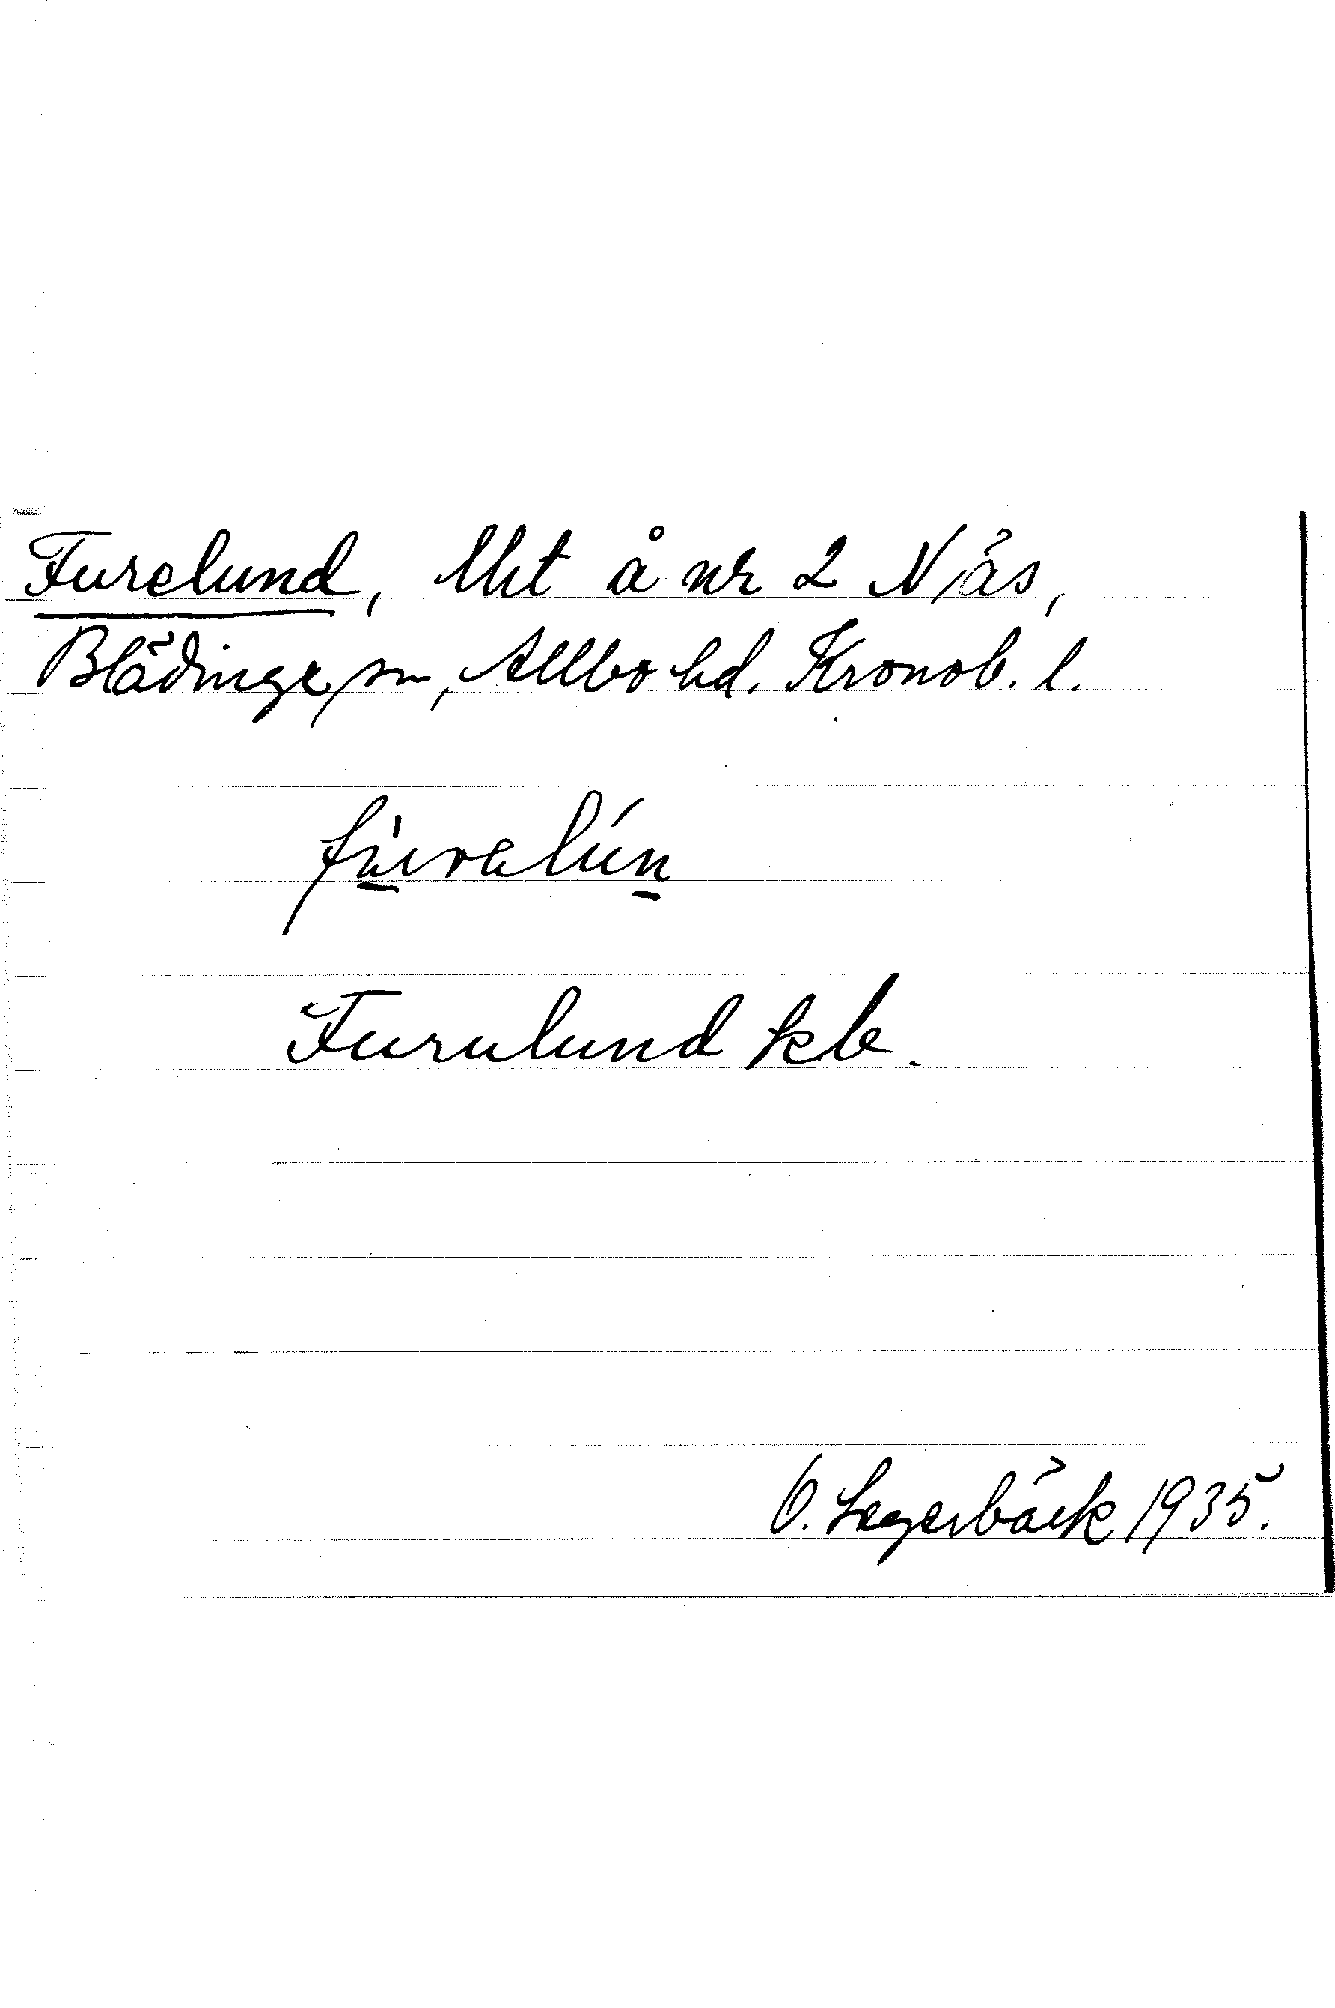 Furelund, lht å nr 2 Näs,
Blädinge sn, Allbo hd. Kronob. l.
fu̠̇ralún̠
Furulund kb.
O. Lagerbäck 1935.